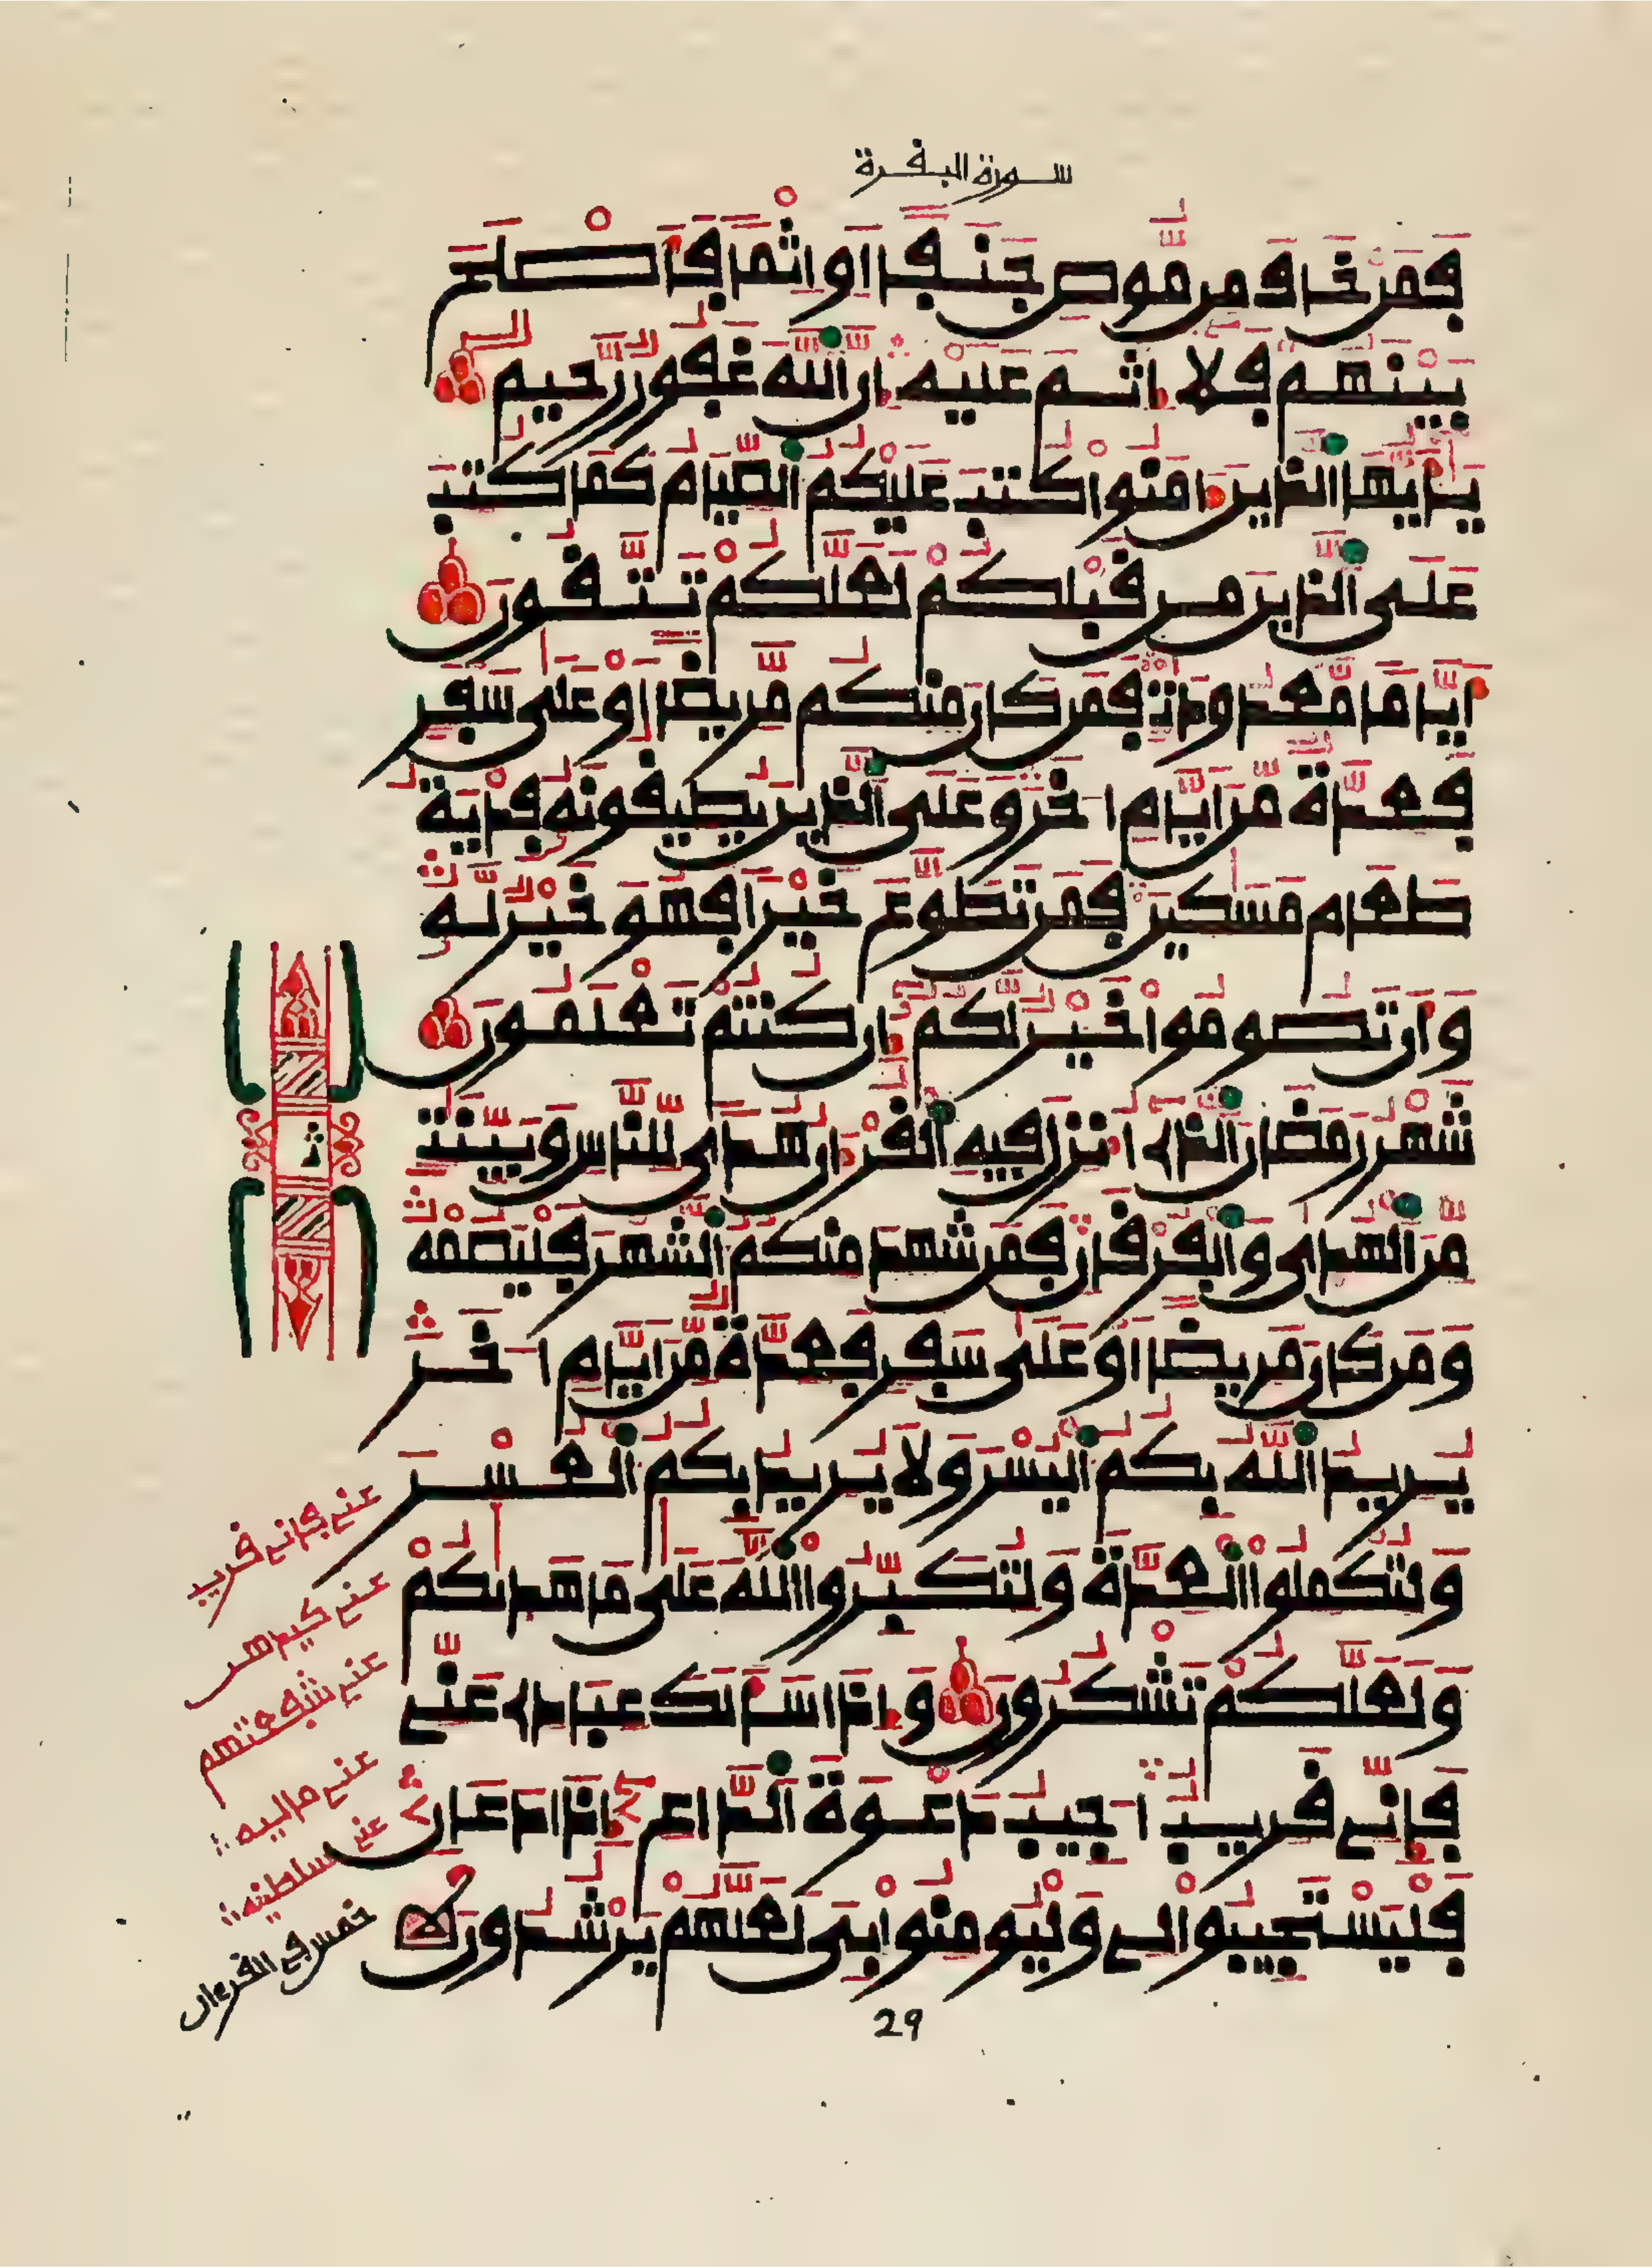 سورة البقرة
فمن خاف من موص جنفا او اثما فاصلح
بينهم فلا اثم عليه ان الله غفور رحيم
يايها الذين ءامنوا كتب عليكم الصيام كما كتب
على الذين من قبلكم لعلكم تتقون
اياما معدودت فمن كان منكم مريضا او على سفر
فعدة من ايام اخر وعلى الذين يطيقونه فدية
طعام مسكين فمن تطوع خيرا فهو خير له
وان تصوموا خير لكم ان كنتم تعلمون
شهر رمضان الذى انزل فيه القرءان هدى للناس وبينت
من الهدى والفرقان فمن شهد منكم الشهر فليصمه
ومن كان مريضا او على سفر فعدة من ايام اخر
يريد الله بكم اليسر ولا يريد بكم العسر
ولتكملوا العدة ولتكبروا الله على ما هديكم
ولعلكم تشكرون واذا سالك عبادى عنے
فانے قريب اجيب دعوة الداع اذا دعان
فليستجيبوا لے وليومنوا بى لعلهم يرشدون
ث
عنے فانے قريب
عنے كيدهن
عنے
عنے ماليه
عنے سلطنيه
خمس فے القرءان
29